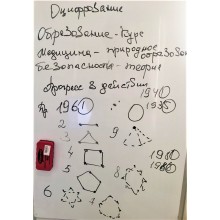 Оцифрование
Образование - Курс
Медицина - природное образован
Безопасность - теория
Прогресс в действии
1940
1961
1985
2
3
9
4
1980
5
8
6
7